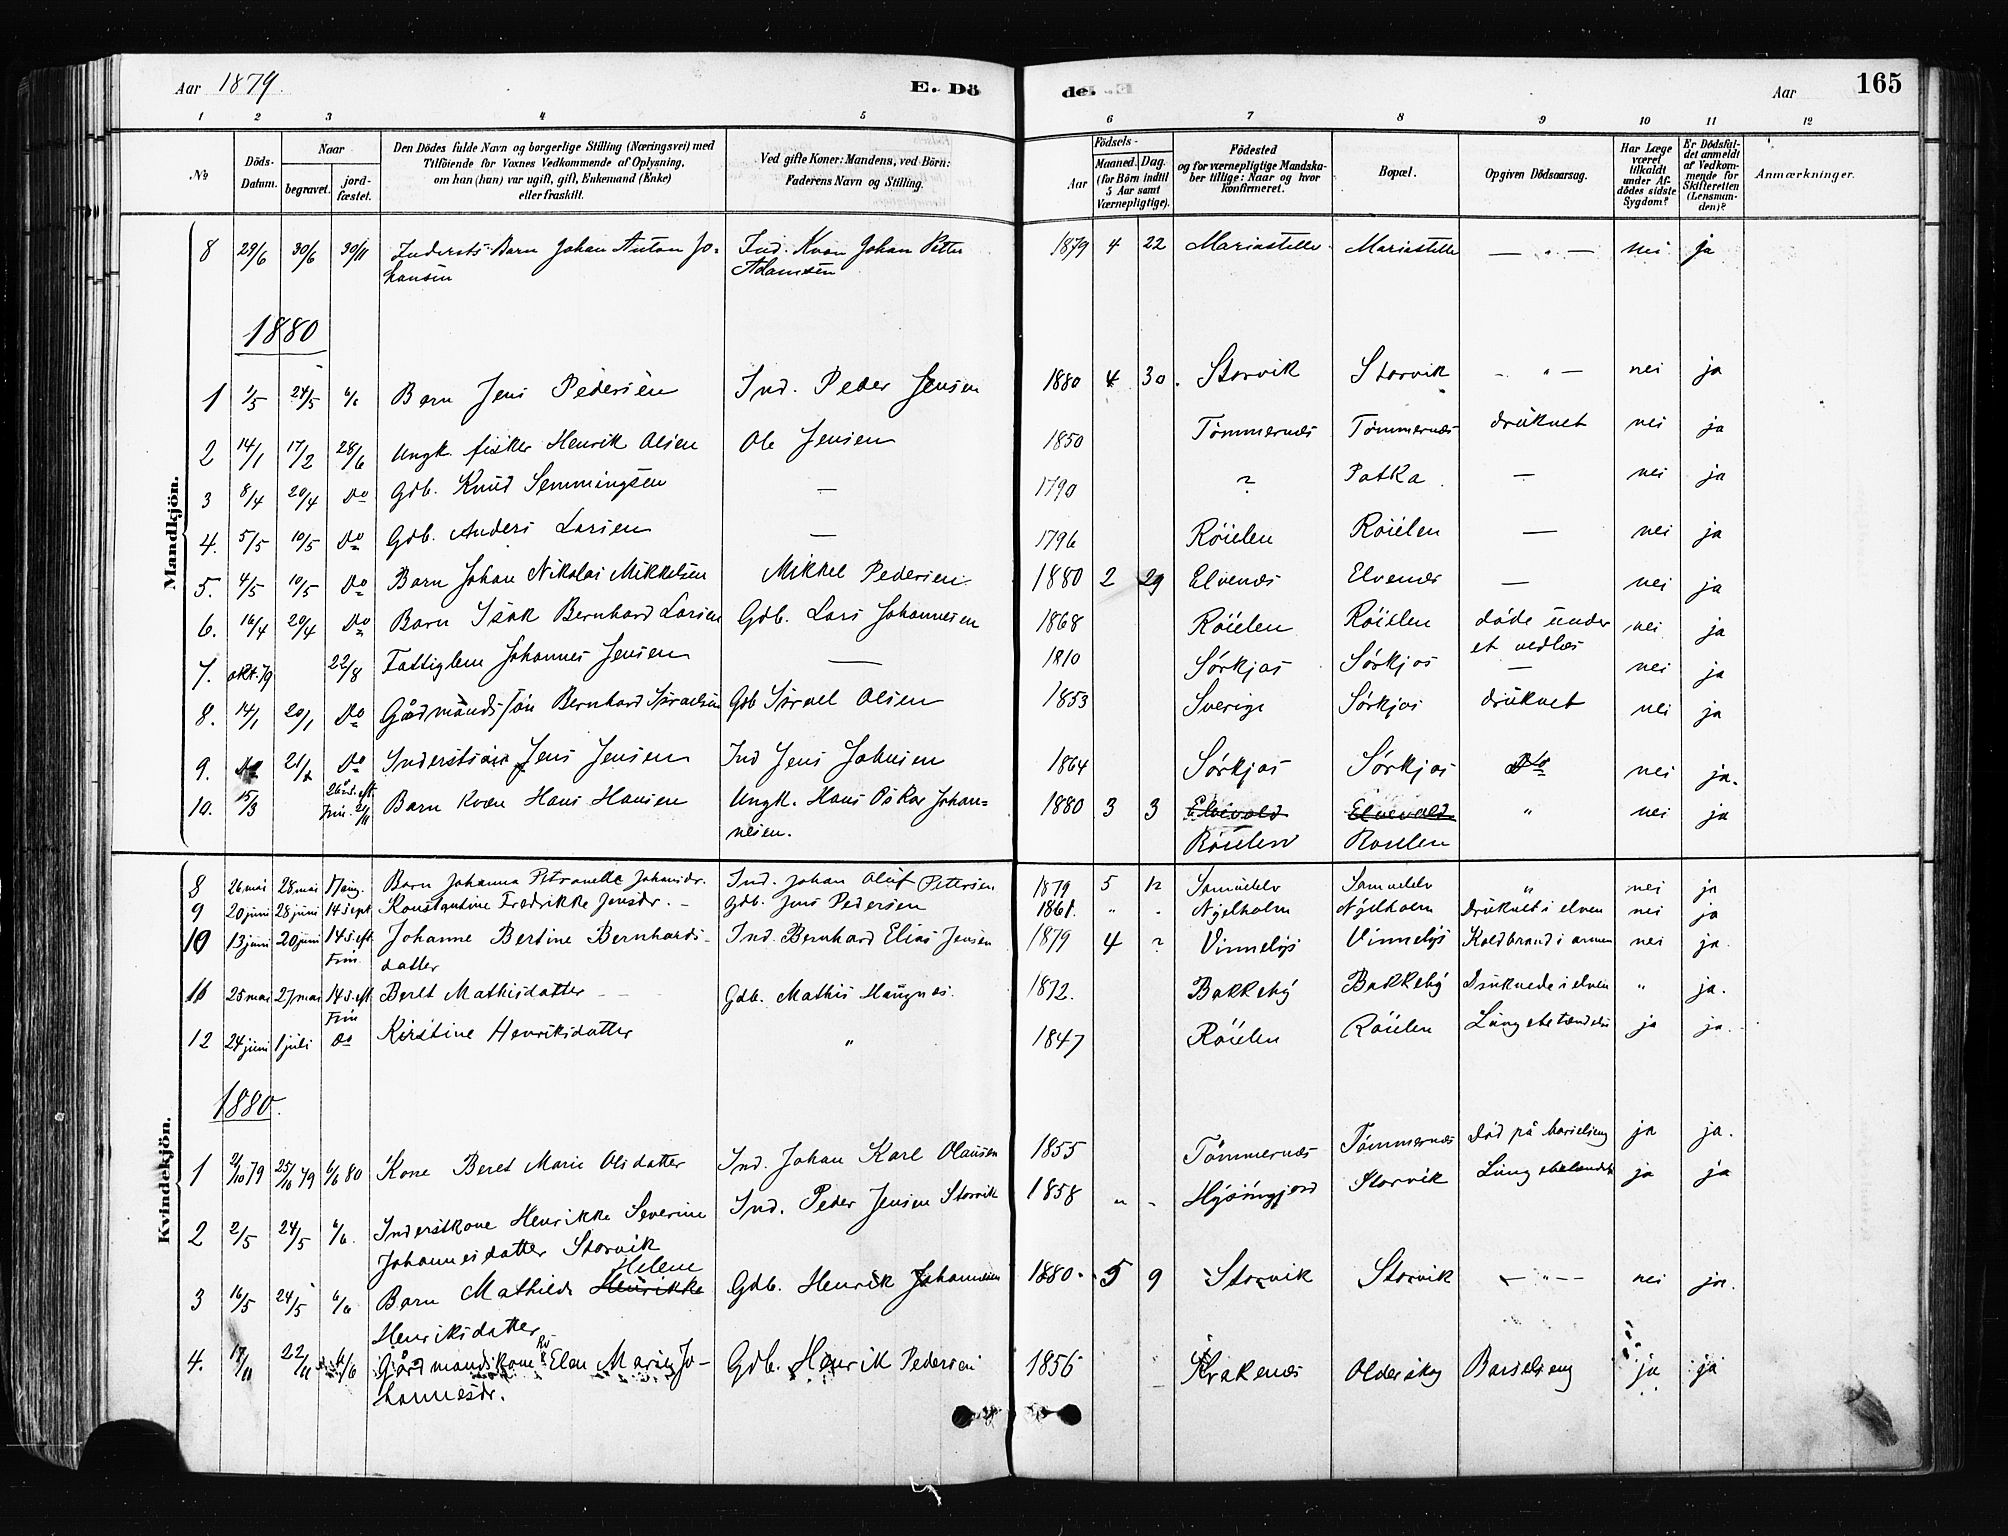 Aar 1879. E. Dö de. Aar 165
1 2 3 4 5 6 7 8 9 10 11 12
No Döds-Datum. Naar begravet. jordfæstet. Den Dödes fulde Navn og borgerlige Stilling (Næringsvei) med Tilföiende for Voxnes Vedkommende af Oplysning, om han (hun) var ugift, gift, Enkemand (Enke) eller fraskilt. Ved gifte Koner: Mandens, ved Börn: Faderens Navn og Stilling. Födsels- Aar Maaned. Dag. (for Börn indtil 5 Aar samt Værnepligtige). Födested og for værnepligtige Mandskaber tillige: Naar og hvor konfirmeret. Bopæl. Opgiven Dödsaarsag. Har Læge været tilkaldt under Afdödes sidste Sygdom? Er Dödsfaldet anmeldt af Vedkommende for Skifteretten (Lensmanden)? Anmærkninger.
Mandkjön.
8 29/6 30/6 30/11 Indersts Barn Johan Anton Jo- Ind. Kvæn Johan Petter 1879 4 22 Mariastellv. Mariastellv — „ — nei ja
hansen Adamsen
1880
1 1/5 24/5 6/6 Barn Jens Pedersen Ind. Peder Jensen 1880 4 30. Storvik Storvik — „ — nei ja
2 14/1 17/2 28/6 Ungk. fisker Henrik Olsen Ole Jensen 1850 Tømmernæs Tømmernæs druknet nei ja
3 8/4 20/4 Do Gdb. Knud Semmingsen — 1790 ? Patka — nei ja
4. 5/5 10/5 Do Gdb. Anders Larsen — 1796 Röielen Röielen — nei ja
5. 4/5 10/5 Do Barn Johan Nikolai Mikkelsen Mikkel Pedersen 1880 2 29 Elvenæs Elvenæs — nei ja
6. 16/4 20/4 Do Barn Isak Bernhard Larsen Gdb. Lars Johannesen 1868 Röielen Röielen døde under nei ja
et vedlæs
7. okt. 79 22/8 Fattiglem Johannes Jensen — 1810 Sörkjos Sörkjos — nei ja
8. 14/1 20/1 Do Gårdmands søn Bernhard Israelsen Gdb Israel Olsen 1853 Sverige Sörkjos druknet nei ja
9. Do 21/1 Do Inderstsön Jens Jensen Ind Jens Johnsen 1864 Sörkjos Sörkjos Do nei ja.
10. 15/3 26de s. eft. Trin. 21/11 Barn Kvæn Hans Hansen Ungk. Hans Oskar Johan= 1880 3 3 Elvevold Elvevold „ nei ja
nesen. Röielen Röielen
Kvindekjön.
8 26 mai 28 mai 17 aug. Barn Johanna Petronelle Johansdr. Ind. Johan Oluf Pettersen 1879 5 12 Samuelelv Samuelelv „ nei ja
9 20 juni 28 juni 14 sept Konstantine Fredrikke Jensdr. — Gdb. Jens Pedersen 1861. „ - Nyelholm Nyelholm druknet i elven nei ja
10 13 juni 20 juni 14 s. eft Trin. Johanne Bertine Bernhards- Ind. Bernhard Elias Jensen 1879 4 ? Vinnelys Vinnelys Koldbrand i armen nei ja.
datter
11 25 mai 27 mai 14 s. eft Trin Beret Mathisdatter Gdb. Mathis Haugnes. 1872. Bakkeby Bakkeby Druknede i elven „ ja.
12 24 juni 1 juli do Kirstine Henriksdatter „ 1847 Röielen Röielen Lungebetændelse ja ja.
1880.
1 2/10 79 25/10 79 6/6 80 Kone Beret Marie Olsdatter Ind. Johan Karl Olausen 1855 Tømmernæs Tømmernæs død på barselseng ja ja.
2 2/5 24/5 6/6. Inderstkone Henrikke Severine Ind. Peder Jensen Storvik 1858 „ - Storvik Lungebetændelse ja ja
Johannesdatter Storvik
3 16/5 24/5 6/6 Barn Mathilde Henrikke Helene Gdb. Henrik Johannesen 1880. 5 9 Storvik Storvik — „ — nei ja.
Henriksdatter
4. 17/11 22/11 6/6 Gårdmandskone Elen Marie Jo- Gdb. Henrik Pedersen 1856 Krakenæs Olderskog Barselseng ja ja
hannesdr.